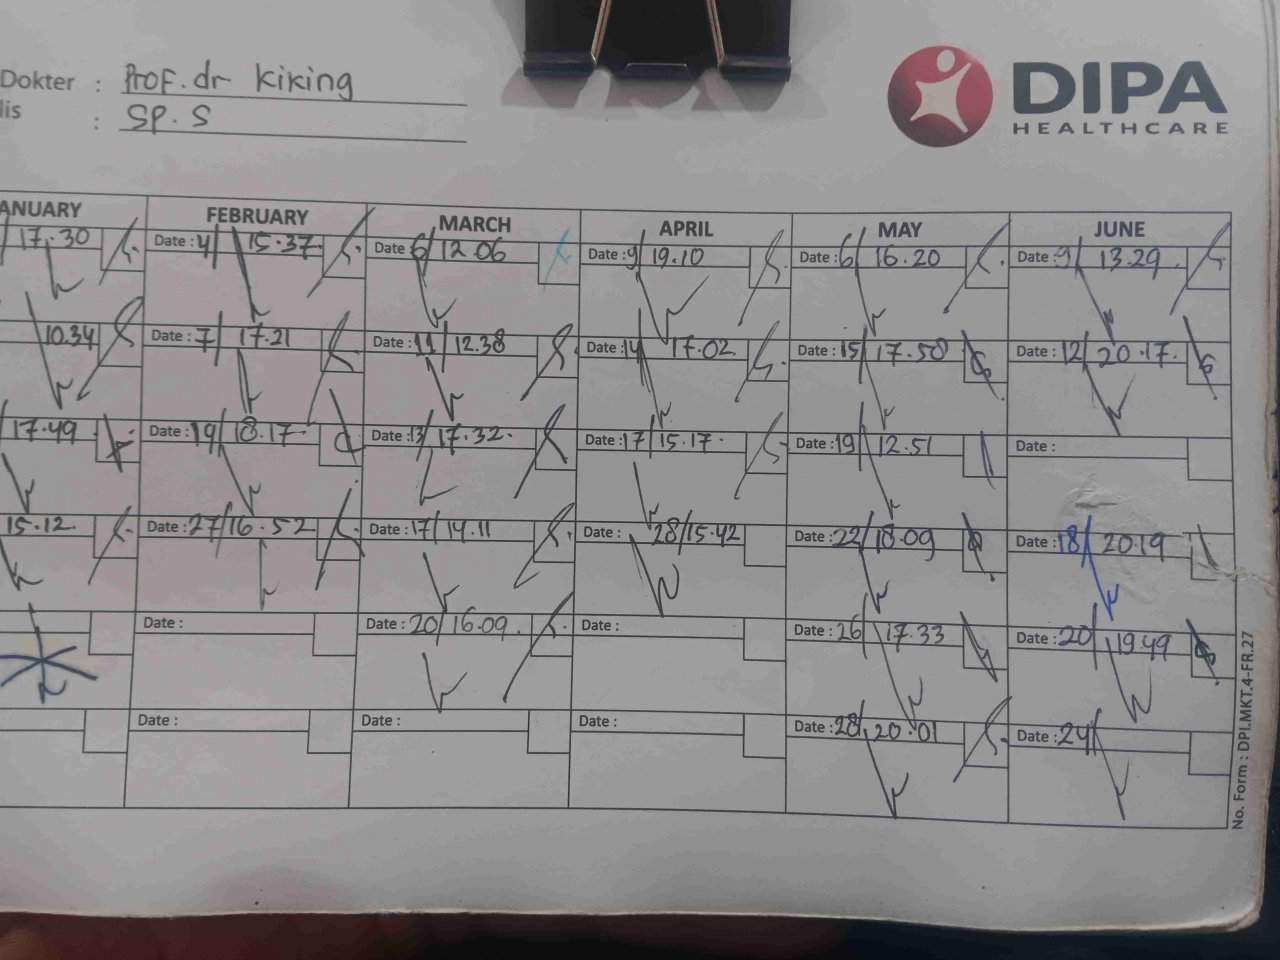 Dokter : Prof. dr Kiking
lis : SP. S
DIPA
HEALTHCARE
ANUARY FEBRUARY MARCH APRIL MAY JUNE
17.30 Date : 4/ 15.37 Date 6/ 12.06 Date : 9/ 19.10 Date : 6/ 16.20 Date : 9/ 13.29
10.34 Date : 7/ 17.21 Date : 11/ 12.38 Date : 14/ 17.02 Date : 15/ 17.50 Date : 12/ 20.17
17.49 Date : 19/ 18.17 Date : 13/ 17.32 Date : 17/ 15.17 Date : 19/ 12.51 Date :
15.12 Date : 27/ 16.52 Date : 17/ 14.11 Date : 28/ 15.42 Date : 22/ 18.09 Date : 18/ 20.19
Date : Date : 20/ 16.09 Date : Date : 26/ 17.33 Date : 20/ 19.49
Date : Date : Date : Date : 28/ 20.01 Date : 24/
No. Form : DPI.MKT.4-FR.27